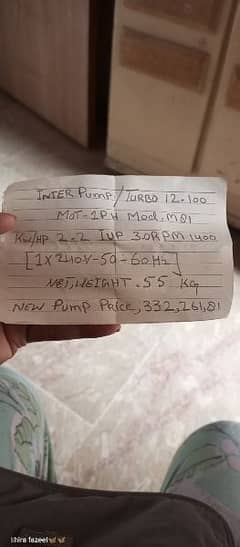 INTER Pump / TURBO 12.100
MOT-1PH Mod.M81
KW/HP 2.2 IUP 30RPM 1400
[1x240V-50-60Hz]
NET,WEIGHT.55 Kg
NEW Pump Price,332,261,81